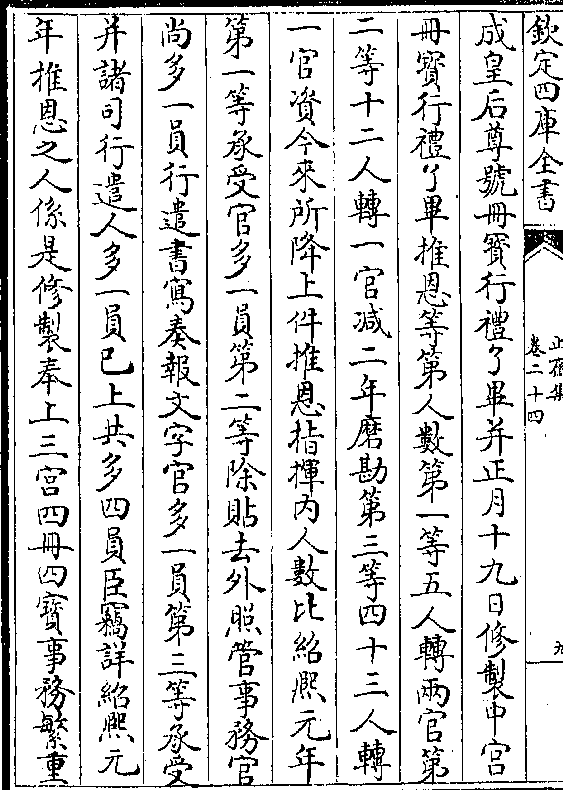 欽定四庫全書
止齋集
卷二十四
九
成皇后尊號冊寳行禮了畢并正月十九日修製中宫
冊寳行禮了畢推恩等第人數第一等五人轉兩官第
二等十二人轉一官减二年磨勘第三等四十三人轉
一官資今來所降上件推恩指揮内人數比紹熙元年
第一等承受官多一員第二等除貼去外照管事務官
尚多一員行遣書寫奏報文字官多一員第三等承受
并諸司行遣人多一員已上共多四員臣竊詳紹熙元
年推恩之人係是修製奉上三宫四冊四寳事務繁重